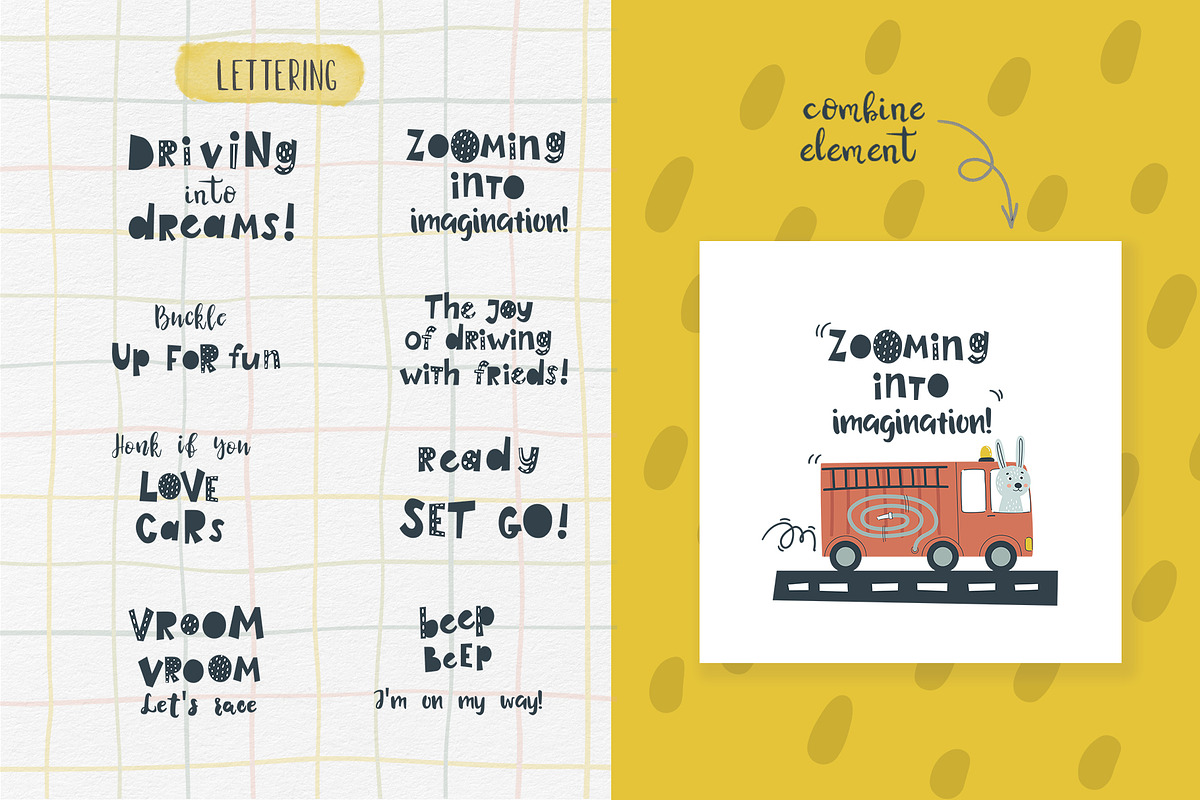 LETTERING
DRiViNg
into
dreaMS!
ZOOMing
inTO
imagination!
Buckle
Up FoR fun
The Joy
of driwing
with frieds!
Honk if you
LOVE
CaRs
Ready
SET GO!
VROOM
VROOM
Let's race
beep
BeEP
I'm on my way!
combine
element
"ZOOMing
inTO
imagination!"